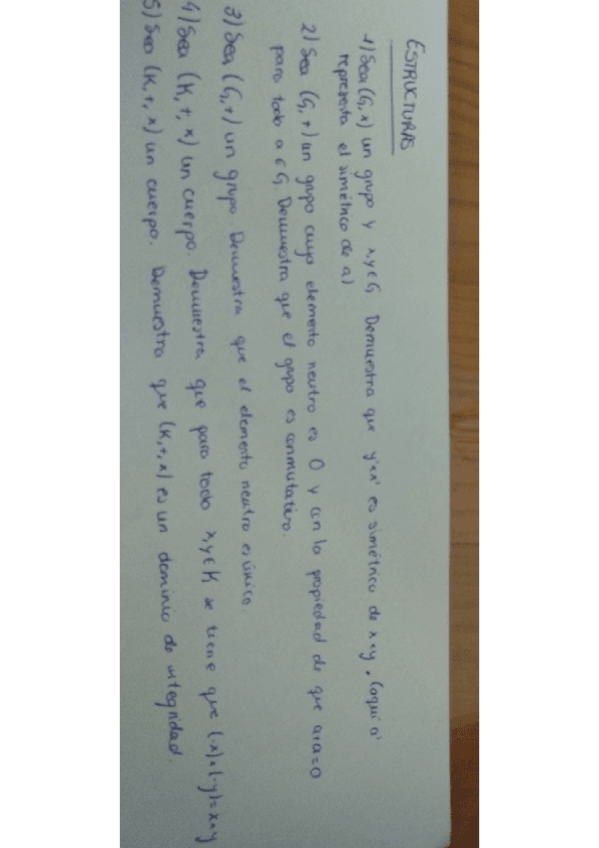 ESTRUCTURAS
1) Sea (G,*) un grupo y x,y∈G Demuestra que y'*x' es simétrico de x*y. (aquí a'
representa el simétrico de a)
2) Sea (G,+) un grupo cuyo elemento neutro es 0 y con la propiedad de que a+a=0
para todo a∈G. Demuestra que el grupo es conmutativo.
3) Sea (G,+) un grupo. Demuestra que el elemento neutro es único.
4) Sea (K,+,×) un cuerpo. Demuestra que para todo x,y∈K se tiene que (-x)×(-y)=x×y
5) Sea (K,+,×) un cuerpo. Demuestra que (K,+,×) es un dominio de integridad.